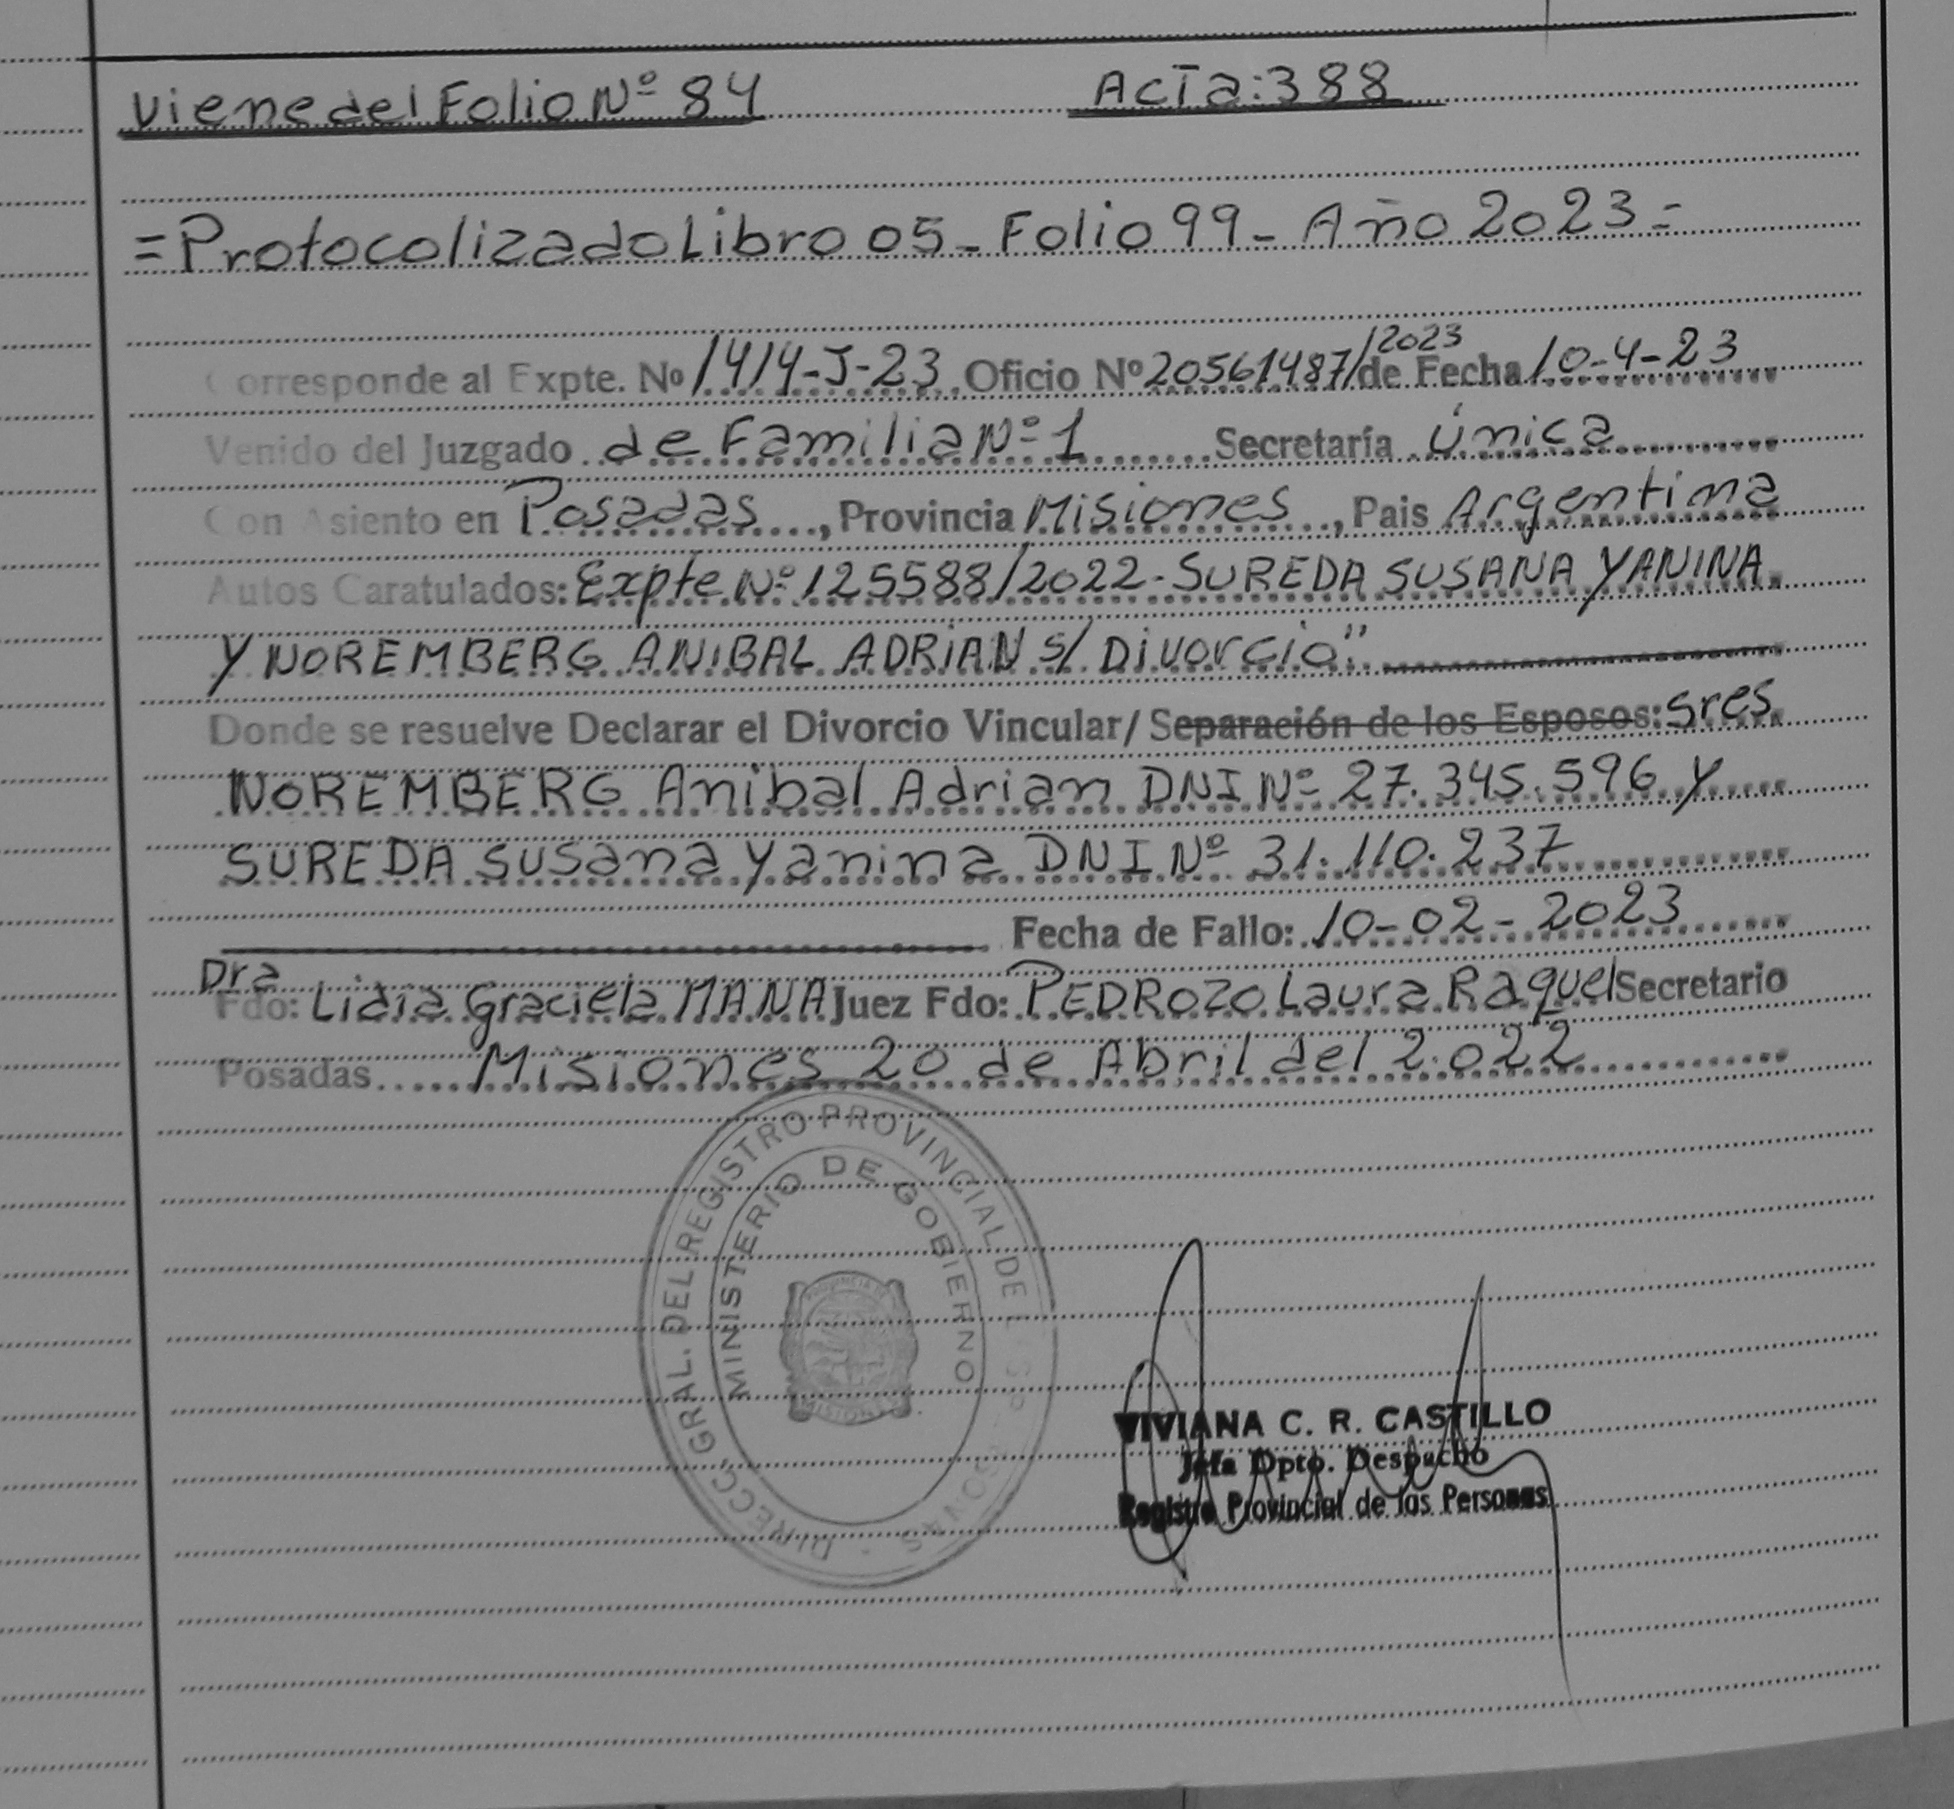 Viene del Folio Nº 84 Acta: 388
= Protocolizado Libro 05 - Folio 99 - Año 2023 =
Corresponde al Expte. Nº 1414-J-23 Oficio Nº 20561487/2023 de Fecha 10-4-23
Venido del Juzgado de Familia Nº 1 Secretaría Única
Con Asiento en Posadas, Provincia Misiones, Pais Argentina
Autos Caratulados: Expte Nº 125588/2022 - SUREDA SUSANA YANINA
Y NOREMBERG ANIBAL ADRIAN s/ Divorcio"
Donde se resuelve Declarar el Divorcio Vincular/ Separación de los Esposos: Sres
NOREMBERG Anibal Adrian DNI Nº 27.345.596 Y
SUREDA Susana Yanina DNI Nº 31.110.237
Fecha de Fallo: 10-02-2023
Dra
Fdo: Lidia Graciela MANA Juez Fdo: PEDROZO Laura Raquel Secretario
Posadas Misiones 20 de Abril del 2.022
DIRECC. GRAL. DEL REGISTRO PROVINCIAL DE
MINISTERIO DE GOBIERNO
PROVINCIA DE
MISIONES
VIVIANA C. R. CASTILLO
Jefa Dpto. Despacho
Registro Provincial de las Personas